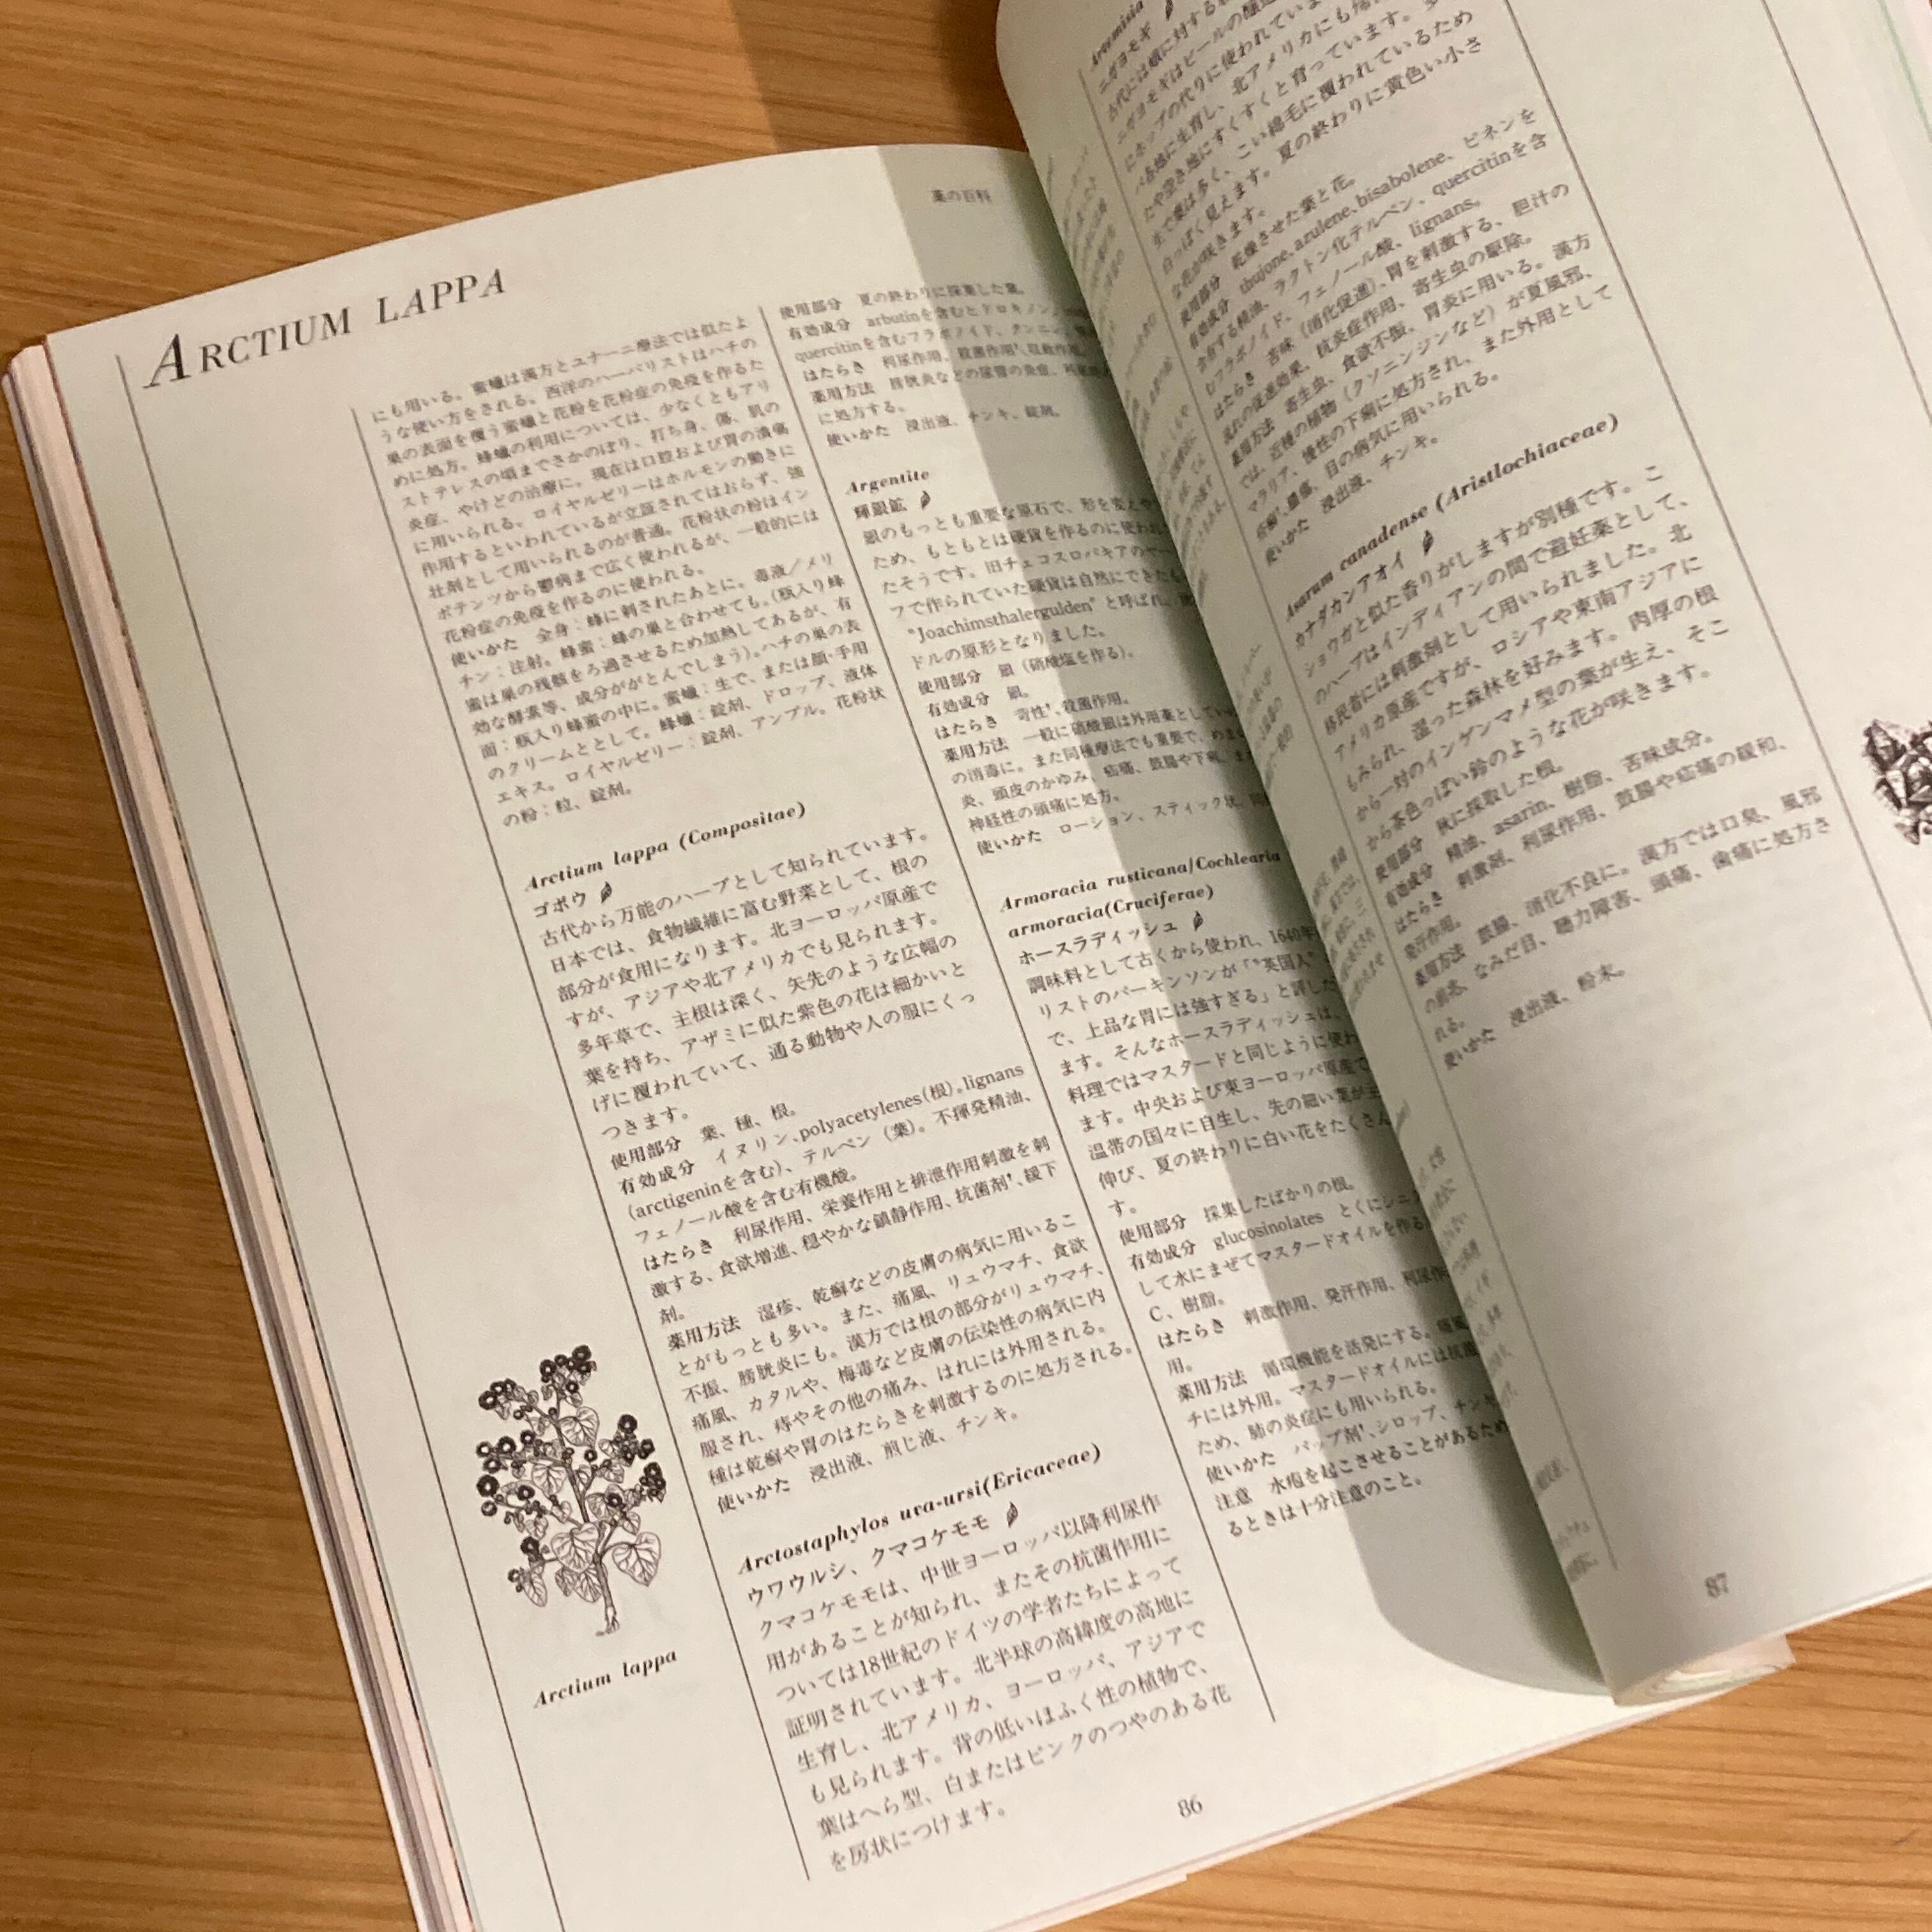 薬の百科
ARCTIUM LAPPA
にも用いる。蜜蠟は漢方とユナーニ療法では似たよ
うな使い方をされる。西洋のハーバリストはハチの
巣の表面を覆う蜜蠟と花粉を花粉症の免疫を作るた
めに処方。蜂蠟の利用については、少なくともアリ
ストテレスの頃までさかのぼり、打ち身、傷、肌の
炎症、やけどの治療に。現在は口腔および胃の潰瘍
に用いられる。ロイヤルゼリーはホルモンの働きに
作用するといわれているが立証されてはおらず、強
壮剤として用いられるのが普通。花粉状の粉はイン
ポテンツから鬱病まで広く使われるが、一般的には
花粉症の免疫を作るのに使われる。
使いかた 全身：蜂に刺されたあとに。毒液／メリ
チン：注射。蜂蜜：蜂の巣と合わせても。(瓶入り蜂
蜜は巣の残骸をろ過させるため加熱してあるが、有
効な酵素等、成分ががとんでしまう)。ハチの巣の表
面：瓶入り蜂蜜の中に。蜜蠟：生で、または顔・手用
のクリームととして。蜂蠟：錠剤、ドロップ、液体
エキス。ロイヤルゼリー：錠剤、アンプル。花粉状
の粉：粒、錠剤。
Arctium lappa (Compositae)
ゴボウ
古代から万能のハーブとして知られています。
日本では、食物繊維に富む野菜として、根の
部分が食用になります。北ヨーロッパ原産で
すが、アジアや北アメリカでも見られます。
多年草で、主根は深く、矢先のような広幅の
葉を持ち、アザミに似た紫色の花は細かいと
げに覆われていて、通る動物や人の服にくっ
つきます。
使用部分 葉、種、根。
有効成分 イヌリン、polyacetylenes(根)。lignans
(arctigeninを含む)、テルペン（葉）。不揮発精油、
フェノール酸を含む有機酸。
はたらき 利尿作用、栄養作用と排泄作用刺激を刺
激する、食欲増進、穏やかな鎮静作用、抗菌剤'、緩下
剤。
薬用方法 湿疹、乾癬などの皮膚の病気に用いるこ
とがもっとも多い。また、痛風、リュウマチ、食欲
不振、膀胱炎にも。漢方では根の部分がリュウマチ、
痛風、カタルや、梅毒など皮膚の伝染性の病気に内
服され、痔やその他の痛み、はれには外用される。
種は乾癬や胃のはたらきを刺激するのに処方される。
使いかた 浸出液、煎じ液、チンキ。
Arctostaphylos uva-ursi(Ericaceae)
ウワウルシ、クマコケモモ
クマコケモモは、中世ヨーロッパ以降利尿作
用があることが知られ、またその抗菌作用に
ついては18世紀のドイツの学者たちによって
証明されています。北半球の高緯度の高地に
生育し、北アメリカ、ヨーロッパ、アジアで
も見られます。背の低いほふく性の植物で、
葉はへら型、白またはピンクのつやのある花
を房状につけます。
Arctium lappa
使用部分 夏の終わりに採集した葉。
有効成分 arbutinを含むヒドロキノン
quercitinを含むフラボノイド、タンニン、
はたらき 利尿作用、殺菌作用'、収斂作用。
薬用方法 膀胱炎などの尿管の炎症、
に処方する。
使いかた 浸出液、チンキ、錠剤。
Argentite
輝銀鉱
銀のもっとも重要な原石で、形を変えや
ため、もともとは硬貨を作るのに使われ
たそうです。旧チェコスロバキアの
フで作られていた硬貨は自然にできた
"Joachimsthalergulden" と呼ばれ、
ドルの原形となりました。
使用部分 銀（硝酸塩を作る）。
有効成分 銀。
はたらき 苛性'、殺菌作用。
薬用方法 一般に硝酸銀は外用薬として
の消毒に。また同種療法でも重要で、めまい
炎、頭皮のかゆみ、疝痛、鼓腸や下痢、
神経性の頭痛に処方。
使いかた ローション、スティック状、
Armoracia rusticana/Cochlearia
armoracia(Cruciferae)
ホースラディッシュ
調味料として古くから使われ、1640年
リストのパーキンソンが「"英国人"
で、上品な胃には強すぎる」と評した
ます。そんなホースラディッシュは、
料理ではマスタードと同じように使わ
ます。中央および東ヨーロッパ原産で
温帯の国々に自生し、先の細い葉が
伸び、夏の終わりに白い花をたくさん
す。
使用部分 採集したばかりの根。
有効成分 glucosinolates とくにシニ
して水にまぜてマスタードオイルを作る
C、樹脂。
はたらき 刺激作用、発汗作用、利尿作
用。
薬用方法 循環機能を活発にする。痛風
チには外用。マスタードオイルには抗菌
ため、肺の炎症にも用いられる。
使いかた パップ剤'、シロップ、チンキ
注意 水疱を起こさせることがあるため
るときは十分注意のこと。
86
Artemisia
ニガヨモギ
古代には蛾に対する
ニガヨモギはビールの醸造
にホップの代りに使われていま
べ各地に生育し、北アメリカにも
たや空き地にすくすくと育っています。
生で葉は多く、こい綿毛に覆われているため
白っぽく見えます。夏の終わりに黄色い小さ
な花が咲きます。
使用部分 乾燥させた葉と花。
有効成分 thujone、azulene、bisabolene、ピネンを
含有する精油、ラクトン化テルペン、quercitinを含
むフラボノイド、フェノール酸、lignans。
はたらき 苦味（消化促進）、胃を刺激する、胆汁の
流れの促進効果、抗炎症作用、寄生虫の駆除。
薬用方法 寄生虫、食欲不振、胃炎に用いる。漢方
では、近種の植物（クソニンジンなど）が夏風邪、
マラリア、慢性の下痢に処方され、また外用として
目の病気に用いられる。
使いかた 浸出液、チンキ。
Asarum canadense (Aristlochiaceae)
カナダカンアオイ
ショウガと似た香りがしますが別種です。こ
のハーブはインディアンの間で避妊薬として、
移民者には刺激剤として用いられました。北
アメリカ原産ですが、ロシアや東南アジアに
もみられ、湿った森林を好みます。肉厚の根
から一対のインゲンマメ型の葉が生え、そこ
から茶色っぽい鈴のような花が咲きます。
使用部分 秋に採取した根。
有効成分 精油、asarin、樹脂、苦味成分。
はたらき 刺激剤、利尿作用、鼓腸や疝痛の緩和、
発汗作用。
薬用方法 鼓腸、消化不良に。漢方では口臭、風邪
の鼻水、なみだ目、聴力障害、頭痛、歯痛に処方さ
れる。
使いかた 浸出液、粉末。
87